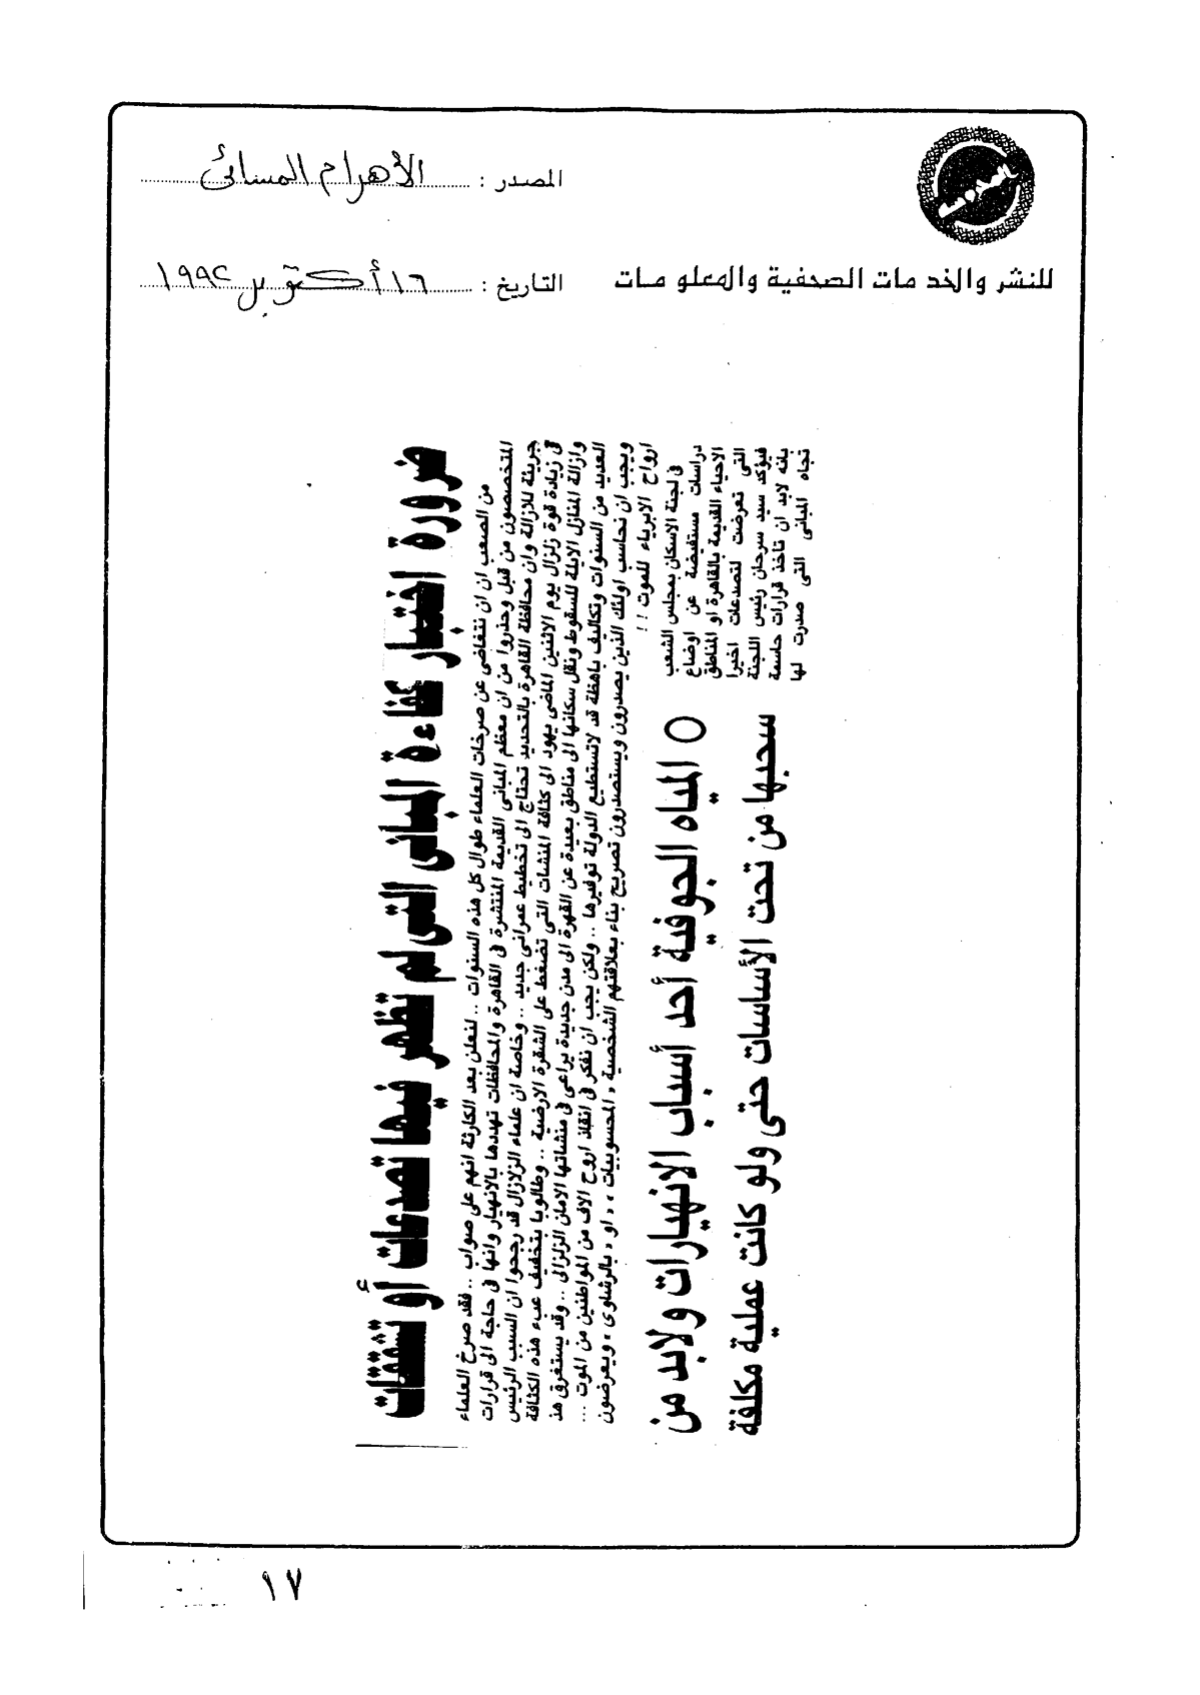 المصدر : الأهرام المسائى
للنشر والخدمات الصحفية والمعلومات
التاريخ : ١٦ أكتوبر ١٩٩٢
ضرورة اختبار كفاءة المبانى التى لم تظهر فيها تصدعات أو تشققات
من الصعب ان نتغاضى عن صرخات العلماء طوال كل هذه السنوات .. لنعلن بعد الكارثة انهم على صواب .. فقد صرخ العلماء
المتخصصون من قبل وحذروا من ان معظم المبانى القديمة المنتشرة فى القاهرة والمحافظات تهددها بالانهيار وانها فى حاجة الى قرارات
جريئة للازالة وان محافظة القاهرة بالتحديد تحتاج الى تخطيط عمرانى جديد .. وخاصة ان علماء الزلازال قد رجحوا ان السبب الرئيس
فى زيادة قوة زلزال يوم الاثنين الماضى يهود الى كثافة المنشات التى تضغط على الشقرة الارضية .. وطالوبا بتخفيف عبء هذه الكثافة
وازالة المنازل الايلة للسقوط ونقل سكانها الى مناطق بعيدة عن القهرة الى مدن جديدة يراعى فى منشاتها الامان الزلزالى .. وقد يستغرق هذ
العديد من السنوات وتكاليف باهظة قد لاتستطيع الدولة توفيرها .. ولكن يجب ان نفكر فى انقاذ اروح الاف من المواطنين من الموت ...
ويجب ان نحاسب اولئك الذين يصدرون ويستصدرون تصريح بناء بعلاقتهم الشخصية « المحسوبيات » ، او « بالرشاوى » ويعرضون
ارواح الابرياء للموت !!
فى لجنة الاسكان بمجلس الشعب
دراسات مستفيضة عن اوضاع
الاحياء القديمة بالقاهرة او المناطق
التى تعرضت لتصدعات اخيرا
فيؤكد سيد سرحان رئيس اللجنة
بانه لابد ان تاخذ قرارات حاسمة
تجاه المبانى التى صدرت لها
○ المياه الجوفية أحد أسباب الانهيارات ولابد من
سحبها من تحت الأساسات حتى ولو كانت عملية مكلفة
١٧